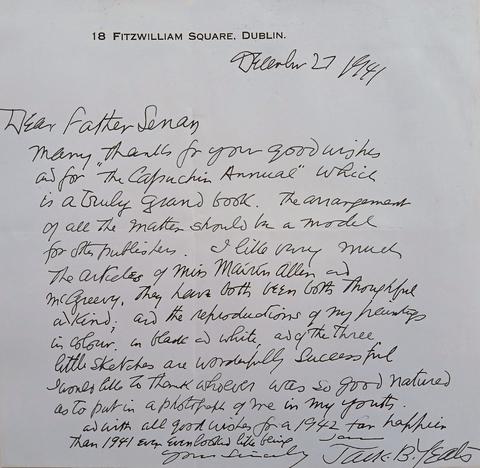 18 FITZWILLIAM SQUARE, DUBLIN.
December 27 1941
Dear Father Senan
Many thanks for your good wishes
and for "The Capuchin Annual" which
is a truly grand book. The arrangement
of all the matter should be a model
for other publishers. I like very much
the articles of Miss Mairin Allen and
McGreevy, they have both been both thoughtful
and kind; and the reproductions of my paintings
in colour, in black and white, and of the three
little sketches are wonderfully successful
I would like to thank whoever was so good natured
as to put in a photograph of me in my youth.
and with all good wishes for a 1942 far happier
than 1941 ever even looked like being
I am
yours sincerely Jack B. Yeats